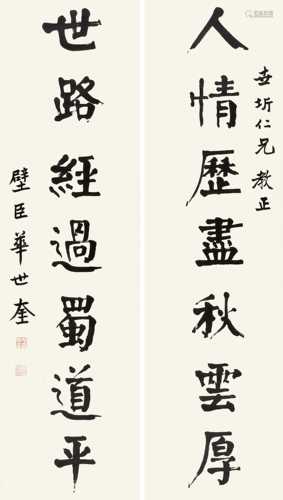 壺圻仁兄教正
人情歷盡秋雲厚
世路經過蜀道平
璧臣華世奎